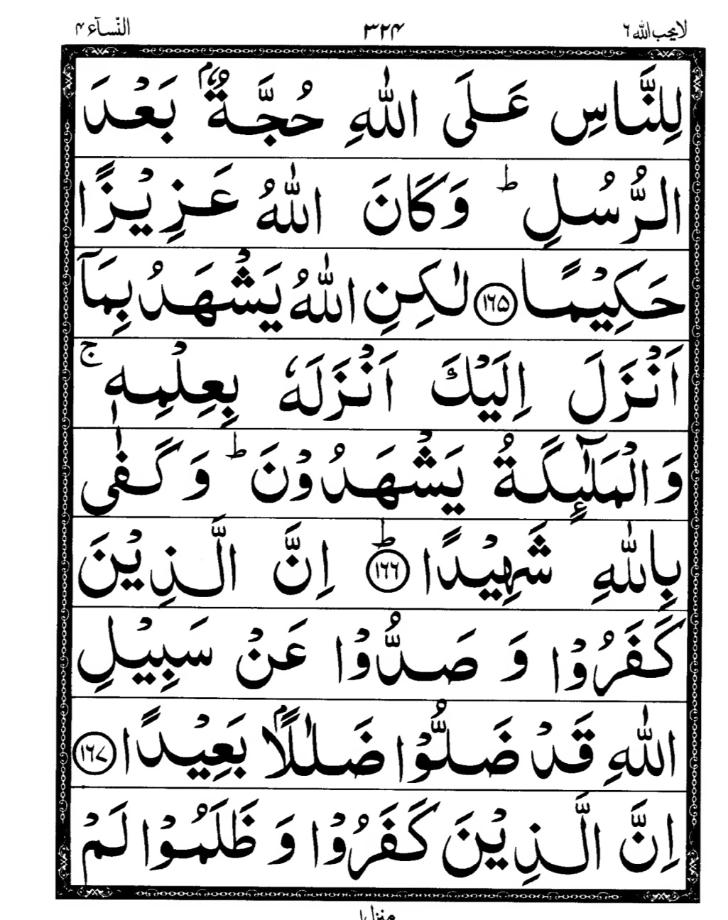 لا يحب الله ٦ ٣٢٤ النسآء ٤
لِلنَّاسِ عَلَى اللّٰهِ حُجَّةٌۢ بَعْدَ
الرُّسُلِ ؕ وَكَانَ اللّٰهُ عَزِيْزًا
حَكِيْمًا ﴿١٦٥﴾ لٰكِنِ اللّٰهُ يَشْهَدُ بِمَاۤ
اَنْزَلَ اِلَيْكَ اَنْزَلَهٗ بِعِلْمِهٖ ۚ
وَالْمَلٰٓئِكَةُ يَشْهَدُوْنَ ؕ وَكَفٰى
بِاللّٰهِ شَهِيْدًا ؕ﴿١٦٦﴾ اِنَّ الَّذِيْنَ
كَفَرُوْا وَ صَدُّوْا عَنْ سَبِيْلِ
اللّٰهِ قَدْ ضَلُّوْا ضَلٰلًاۢ بَعِيْدًا ﴿١٦٧﴾
اِنَّ الَّذِيْنَ كَفَرُوْا وَ ظَلَمُوْا لَمْ
منزل ١